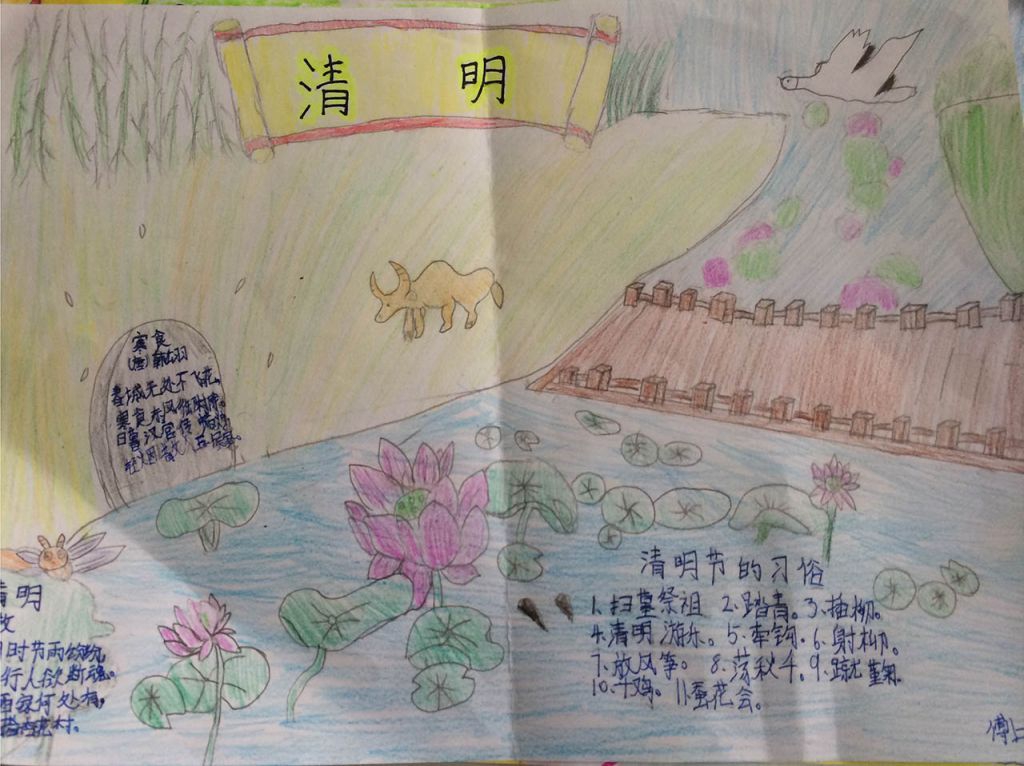 清 明
寒食
(唐)韩翃
春城无处不飞花,
寒食东风御柳斜。
日暮汉宫传蜡烛
轻烟散入五侯家。
明
牧
时节雨纷纷,
行人欲断魂。
酒家何处有,
指杏花村。
清明节的习俗
1.扫墓祭祖 2.踏青。3.插柳。
4.清明 游乐。5.牵钩.6.射柳.
7.放风筝。8.荡秋千。9.蹴
10.斗鸡。11.蚕花会。
傅